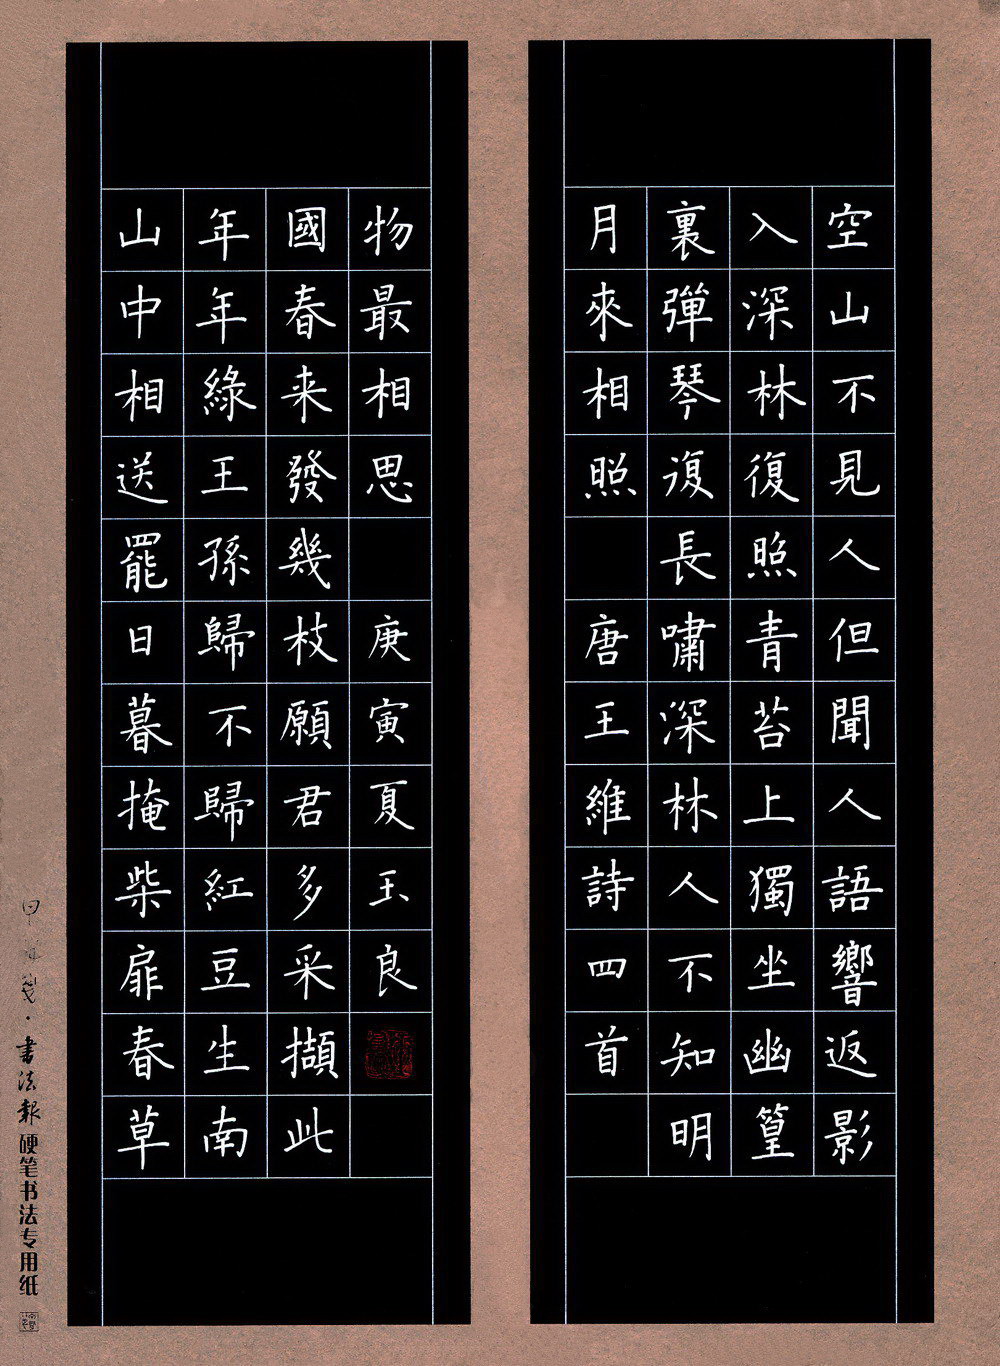 空山不見人但聞人語響返影
入深林復照青苔上獨坐幽篁
裏彈琴復長嘯深林人不知明
月來相照 唐王維詩四首
物最相思 庚寅夏玉良
國春来發幾枝願君多采擷此
年年綠王孫歸不歸紅豆生南
山中相送罷日暮掩柴扉春草
書法報硬笔书法专用纸